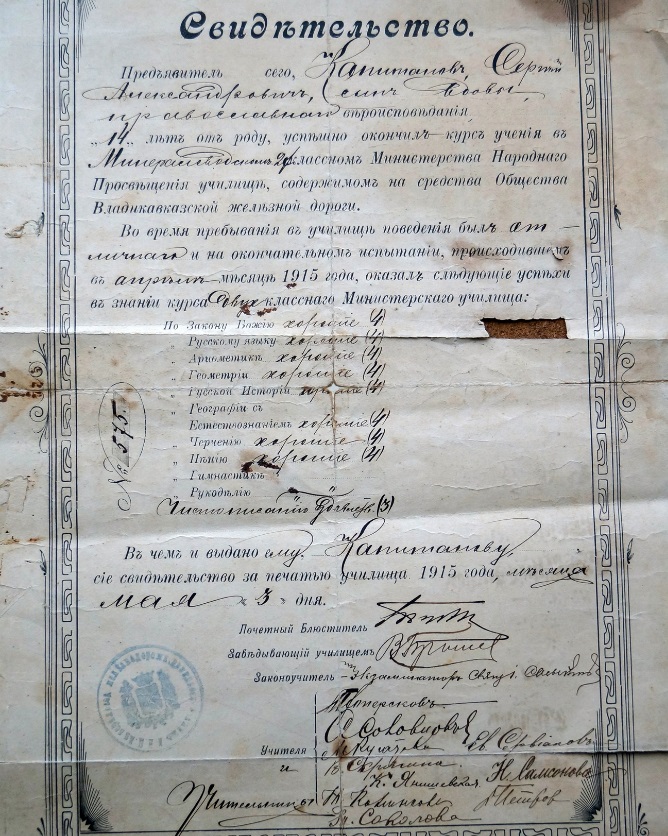 Свидѣтельство.
Предъявитель сего, Капитановъ, Сергѣй
Александровичъ, сынъ вдовы,
православнаго вѣроисповѣданія,
„14„ лѣтъ отъ роду, успѣшно окончилъ курсъ ученія въ
Минераловодскомъ 2х классномъ Министерства Народнаго
Просвѣщенія училищѣ, содержимомъ на средства Общества
Владикавказской желѣзной дороги.
Во время пребыванія въ училищѣ поведенія былъ от-
личнаго и на окончательномъ испытаніи, происходившемъ
въ апрѣлѣ мѣсяцѣ 1915 года, оказалъ слѣдующіе успѣхи
въ знаніи курса Двухкласснаго Министерскаго училища:
По Закону Божію хорошіе (4)
„ Русскому языку хорошіе (4)
„ Ариѳметикѣ хорошіе (4)
„ Геометріи хорошіе (4)
„ Русской Исторіи хорошіе (4)
„ Географіи съ
Естествознаніемъ хорошіе (4)
„ Черченію хорошіе (4)
„ Пѣнію хорошіе (4)
„ Гимнастикѣ
„ Рукодѣлію „
Чистописанію (3)
№ 575.
Въ чемъ и выдано ему, Капитанову,
сіе свидѣтельство за печатью училища 1915 года, мѣсяца
мая „ 3 „ дня.
Почетный Блюститель
Завѣдывающій училищемъ
Законоучитель – экзаминаторъ свящ.
О. Соковцовъ
Учителя
и
К. Янишевская Н. Симонова
Учительницы Петровъ
Соколова